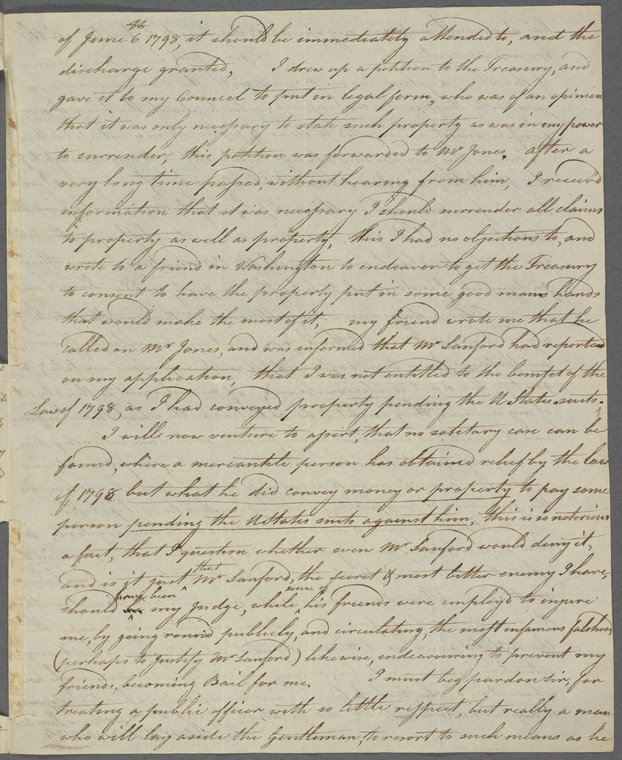 of June 6th 1798, it should be immediately attended to, and the
discharge granted, I drew up a petition to the Treasury, and
gave it to my Councel to put in legal form, who was of an opinion
that it was only necessary to state such property as was in my power
to surrender, this petition was forwarded to Mr Jones, after a
very long time passed, without hearing from him, I receiv'd
information that it was necessary I should surrender all claims
to property as well as property, this I had no objections to, and
wrote to a friend in Washington to endeavor to get the Treasury
to consent to have the property put in some good mans hands
that would make the most of it, my friend wrote me that he
called on Mr Jones, and was informed that Mr Sanford had reported
on my application, that I was not entitled to the benefit of the
Law of 1798, as I had conveyed property pending the U States suits.
I will now venture to assert, that no solitary case can be
found, where a mercantile person has obtained relief by the law
of 1798 but what he did convey money or property to pay some
person pending the U States suits against him, this is so notorious
a fact, that I question whether even Mr Sanford would deny it,
and is it just that Mr Sanford, the secret & most bitter enemy I have,
should have been my Judge, while some of his friends were employd to injure
me, by going round publicly, and circulating, the most infamous falshoods,
(perhaps to justify Mr Sanford) likewise, endeavouring to prevent my
friends, becoming Bail for me. I must beg pardon Sir, for
treating a public officer with so little respect, but really a man
who will lay aside the Gentleman, to resort to such means as he